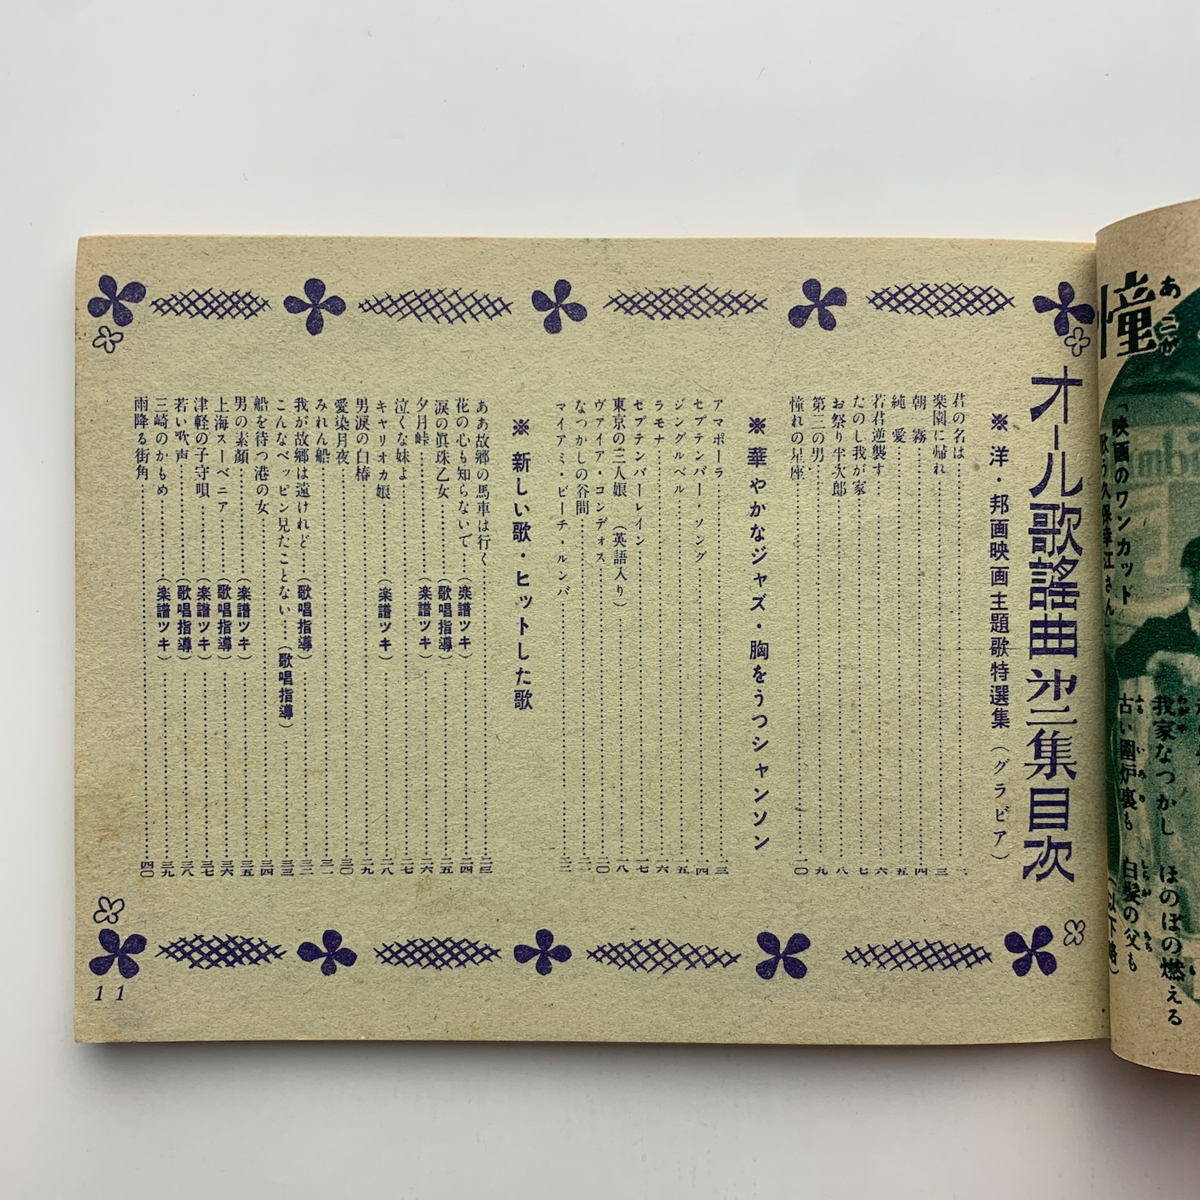 オール歌謡曲第二集目次
※洋・邦画映画主題歌特選集（グラビア）
君の名は
楽園に帰れ……三
朝霧……四
純愛……五
若君逆襲す……六
たのし我が家……七
お祭り半次郎……八
第三の男……九
憧れの星座……一〇
※華やかなジャズ・胸をうつシャンソン
アマポーラ……一三
セプテンバー・ソング……一四
ジングルベル……一五
ラモナ……一六
セプテンバーレイン……一七
東京の二人娘（英語入り）……一八
ヴァイア・コンディオス……二〇
なつかしの谷間
マイアミ・ビーチ・ルンバ……二二
※新しい歌・ヒットした歌
あゝ故郷の馬車は行く……二三
花の心も知らないで……（楽譜ツキ）……二四
涙の眞珠乙女……（歌唱指導）……二五
夕月峠……（楽譜ツキ）……二六
泣くな妹よ……二七
キャリオカ娘……（楽譜ツキ）……二八
男涙の白椿……二九
愛染月夜……三〇
みれん船……三一
我が故郷は遠けれど……（歌唱指導）……三二
こんなベッピン見たことない……（歌唱指導）……三三
船を待つ港の女……三四
男の素顔……（楽譜ツキ）……三五
上海スーベニア……（歌唱指導）……三六
津軽の子守唄……（楽譜ツキ）……三七
若い歌声……（歌唱指導）……三八
三崎のかもめ……（楽譜ツキ）……三九
雨降る街角……四〇
11
憧
あこが
「映画のワンカット
歌う久保幸江さん
我家なつかし　ほのぼの燃える
古い圍炉裏も　白髪の父も
（以下略）